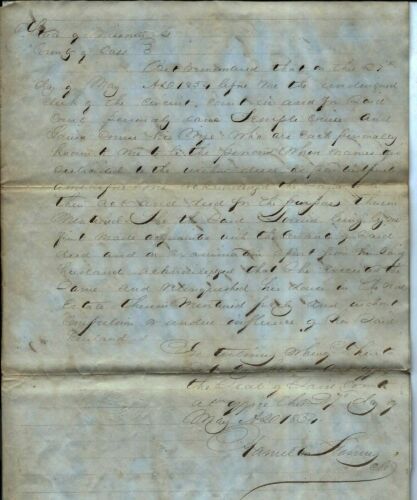 State of Missouri }
County of Cass }
Be it Remembered that on this 27th
Day of May AD 1854 before me the undersigned
Clerk of the Circuit Court in and for Said
County Personally came Temple and
Louisa his Wife Who are Each personally
Known to Me to be the persons Whose names are
Subscribed to the within deed as parties
and
their Act and deed for the purposes therein
Mentioned She the Said Louisa being by me
first made acquainted with the contents of Said
deed and on Examination apart from her Said
Husband acknowledged that She Executed the
Same and Relinquished her Dower in the Real
Estate therein Mentioned freely and without
Compulsion or undue influence of her Said
Husband
In testimony Whereof I have
the Seal of Said Court
at office this 27th Day of
May AD 1854
Hamilton